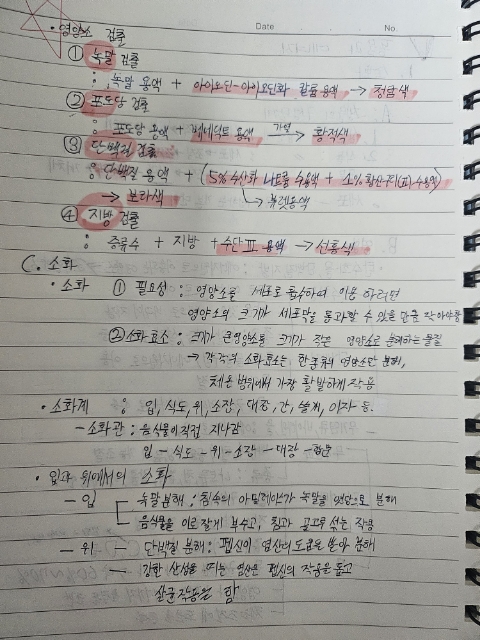 Date No.
· 영양소 검출
① 녹말 검출
: 녹말 용액 + 아이오딘-아이오딘화 칼륨 용액 → 청람색
② 포도당 검출
: 포도당 용액 + 베네딕트 용액 가열→ 황적색
③ 단백질 검출
: 단백질 용액 + (5% 수산화 나트륨 수용액 + 1% 황산구리(Ⅱ) 수용액)
→ 보라색 ↳ 뷰렛용액
④ 지방 검출
: 증류수 + 지방 + 수단Ⅲ 용액 → 선홍색
C. 소화
· 소화 ① 필요성 : 영양소를 세포로 흡수하여 이용하려면
영양소의 크기가 세포막을 통과할 수 있을 만큼 작아야함
② 소화효소 : 크기가 큰 영양소를 크기가 작은 영양소로 분해하는 물질
→ 각각의 소화효소는 한 종류의 영양소만 분해,
체온 범위에서 가장 활발하게 작용
· 소화계 : 입, 식도, 위, 소장, 대장, 간, 쓸개, 이자 등.
- 소화관 : 음식물이 직접 지나감
입 - 식도 - 위 - 소장 - 대장 - 항문
· 입과 위에서의 소화
- 입 녹말분해 : 침속의 아밀레이스가 녹말을 엿당으로 분해
음식물을 이로 잘게 부수고, 침과 골고루 섞는 작용
- 위 - 단백질 분해 : 펩신이 염산의 도움을 받아 분해
- 강한 산성을 띠는 염산은 펩신의 작용을 돕고
살균작용을 함